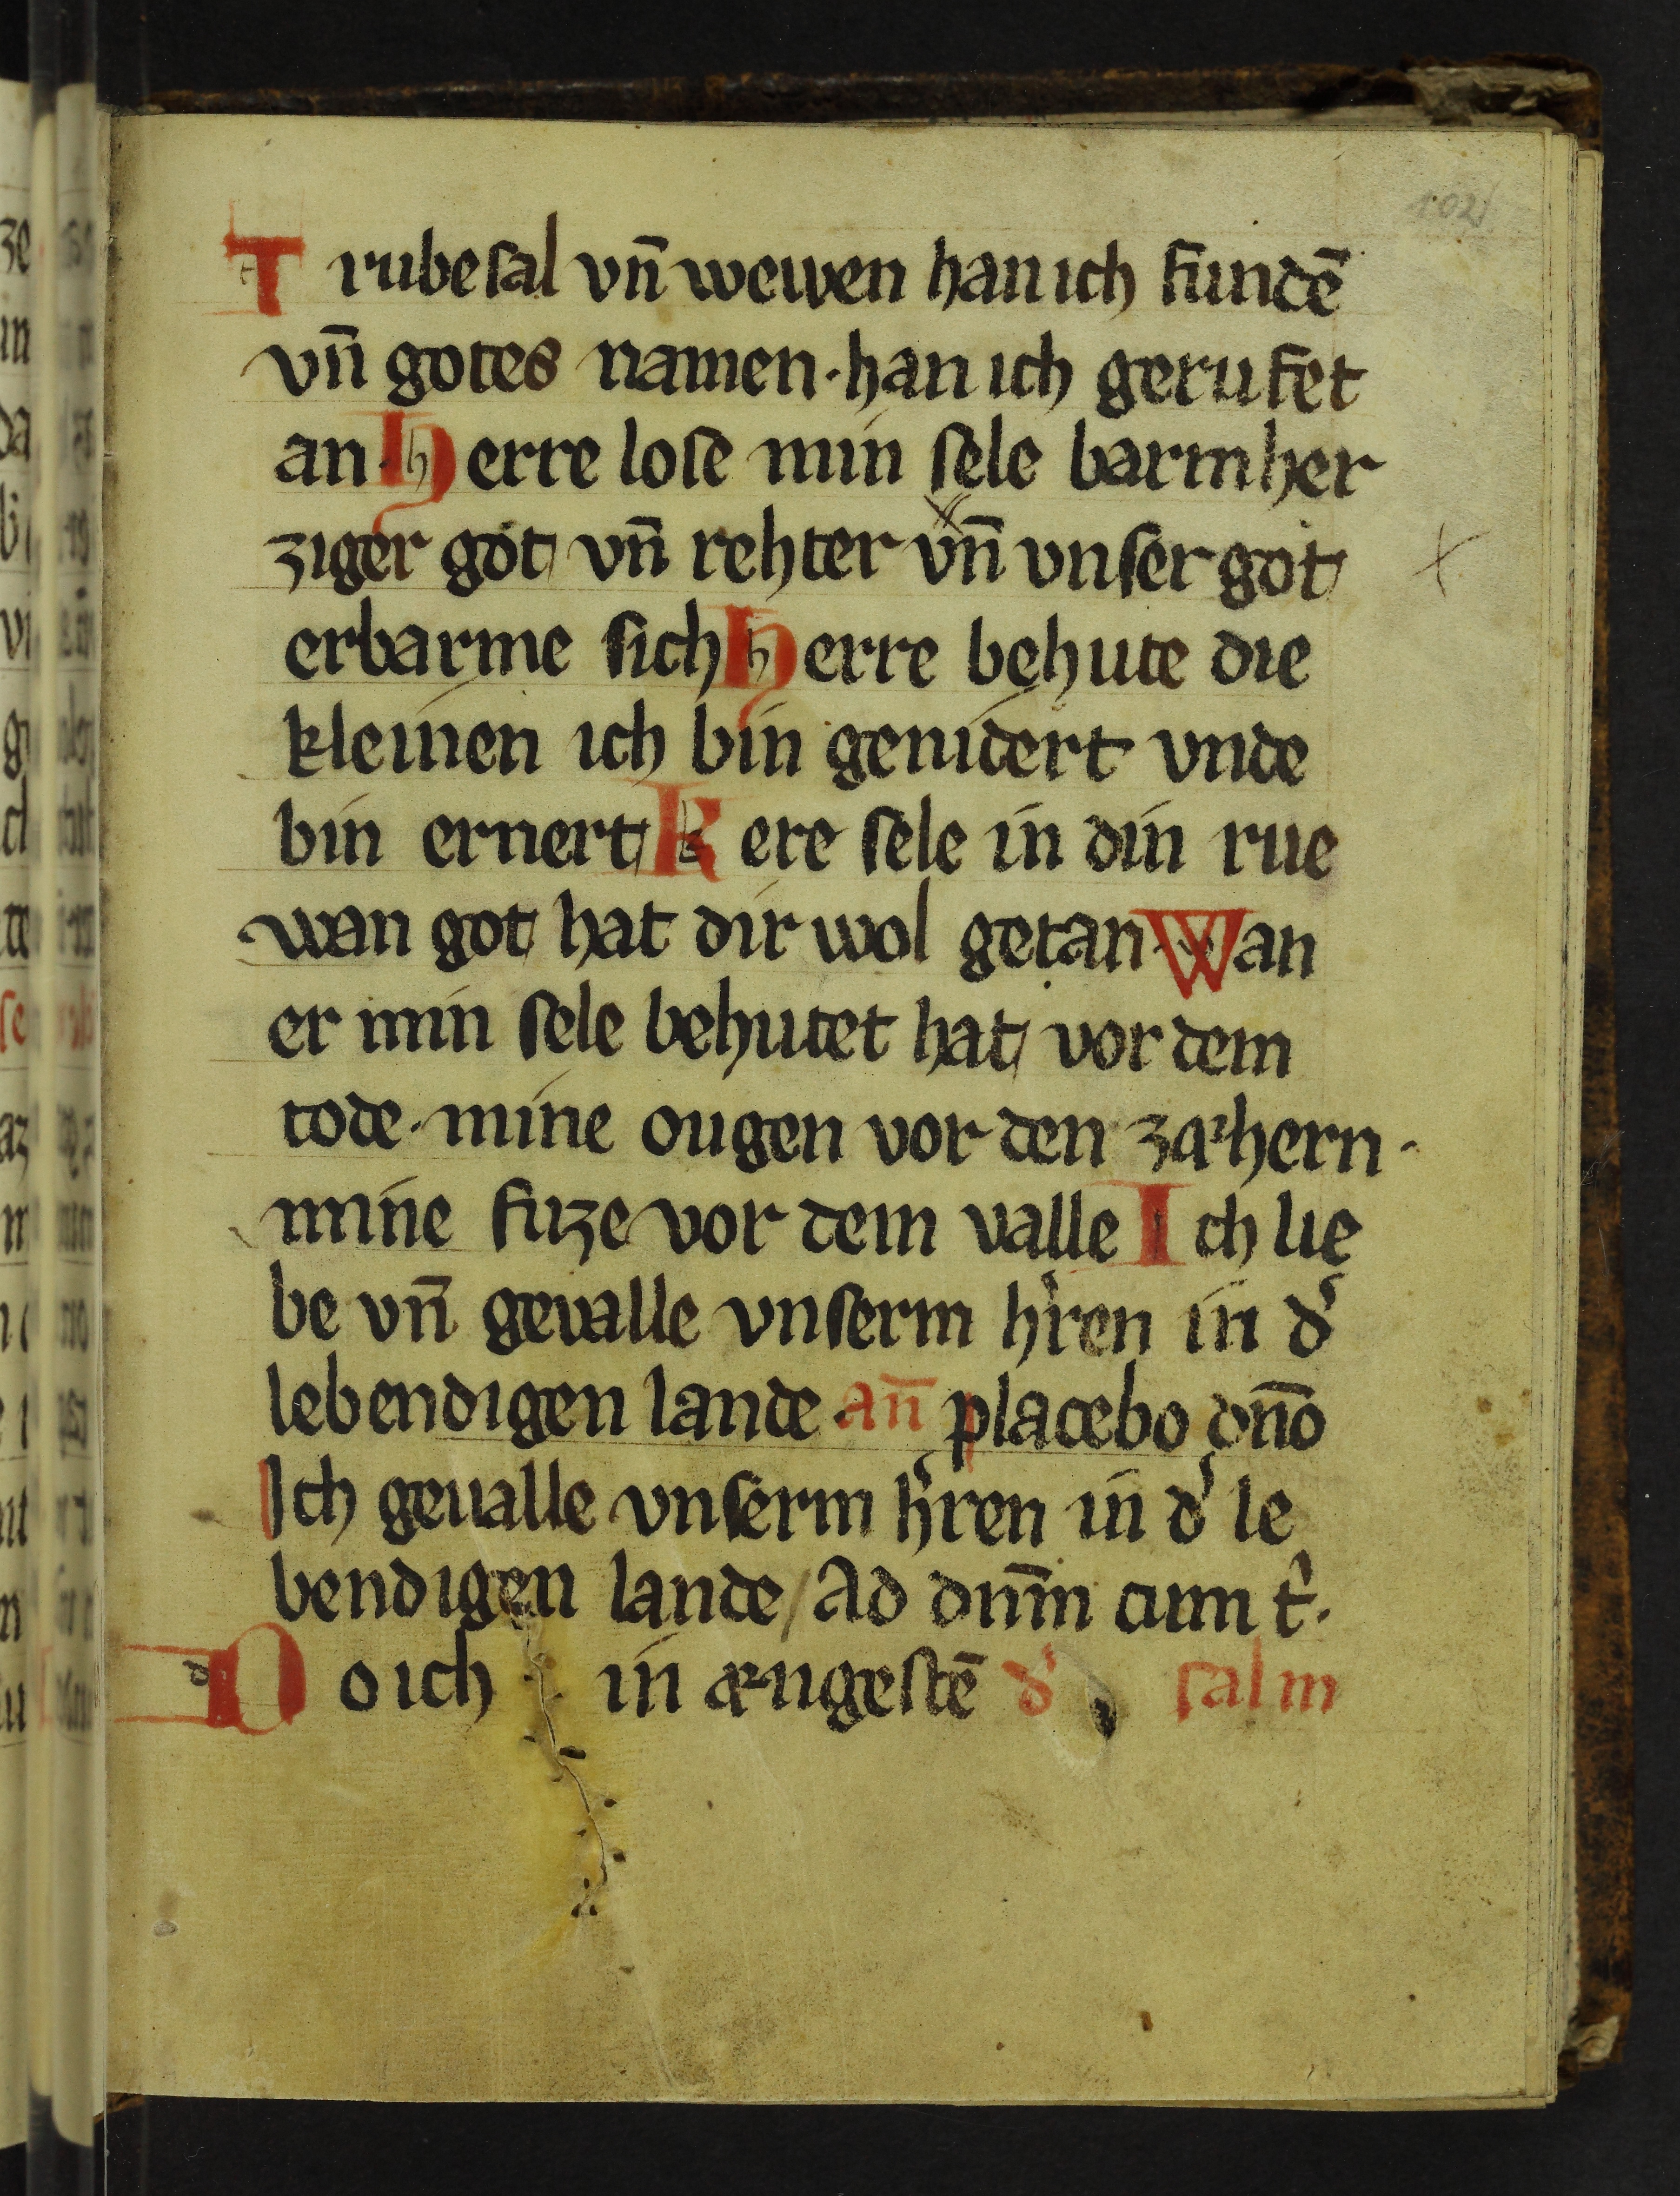 102
Trubesal vn̄ wewen han ich fundē
vn̄ gotes namen · han ich gerufet
an · Herre lose min sele barmher
ziger got vn̄ rehter vn̄ vnser got
erbarme sich Herre behute die
kleinen ich bin genidert vnde
bin ernert Kere sele in din rue
wan got hat dir wol getan · Wan
er min sele behutet hat vor dem
tode · mine ougen vor den zæhern ·
mine fuze vor dem valle Ich lie
be vn̄ geualle vnserm h'ren in d'
lebendigen lande · an̄ placebo dn̄o
Ich geualle vnserm h'ren in d' le
bendigen lande / Ad dn̄m cum t'.
Do ich in ængestē d' salm